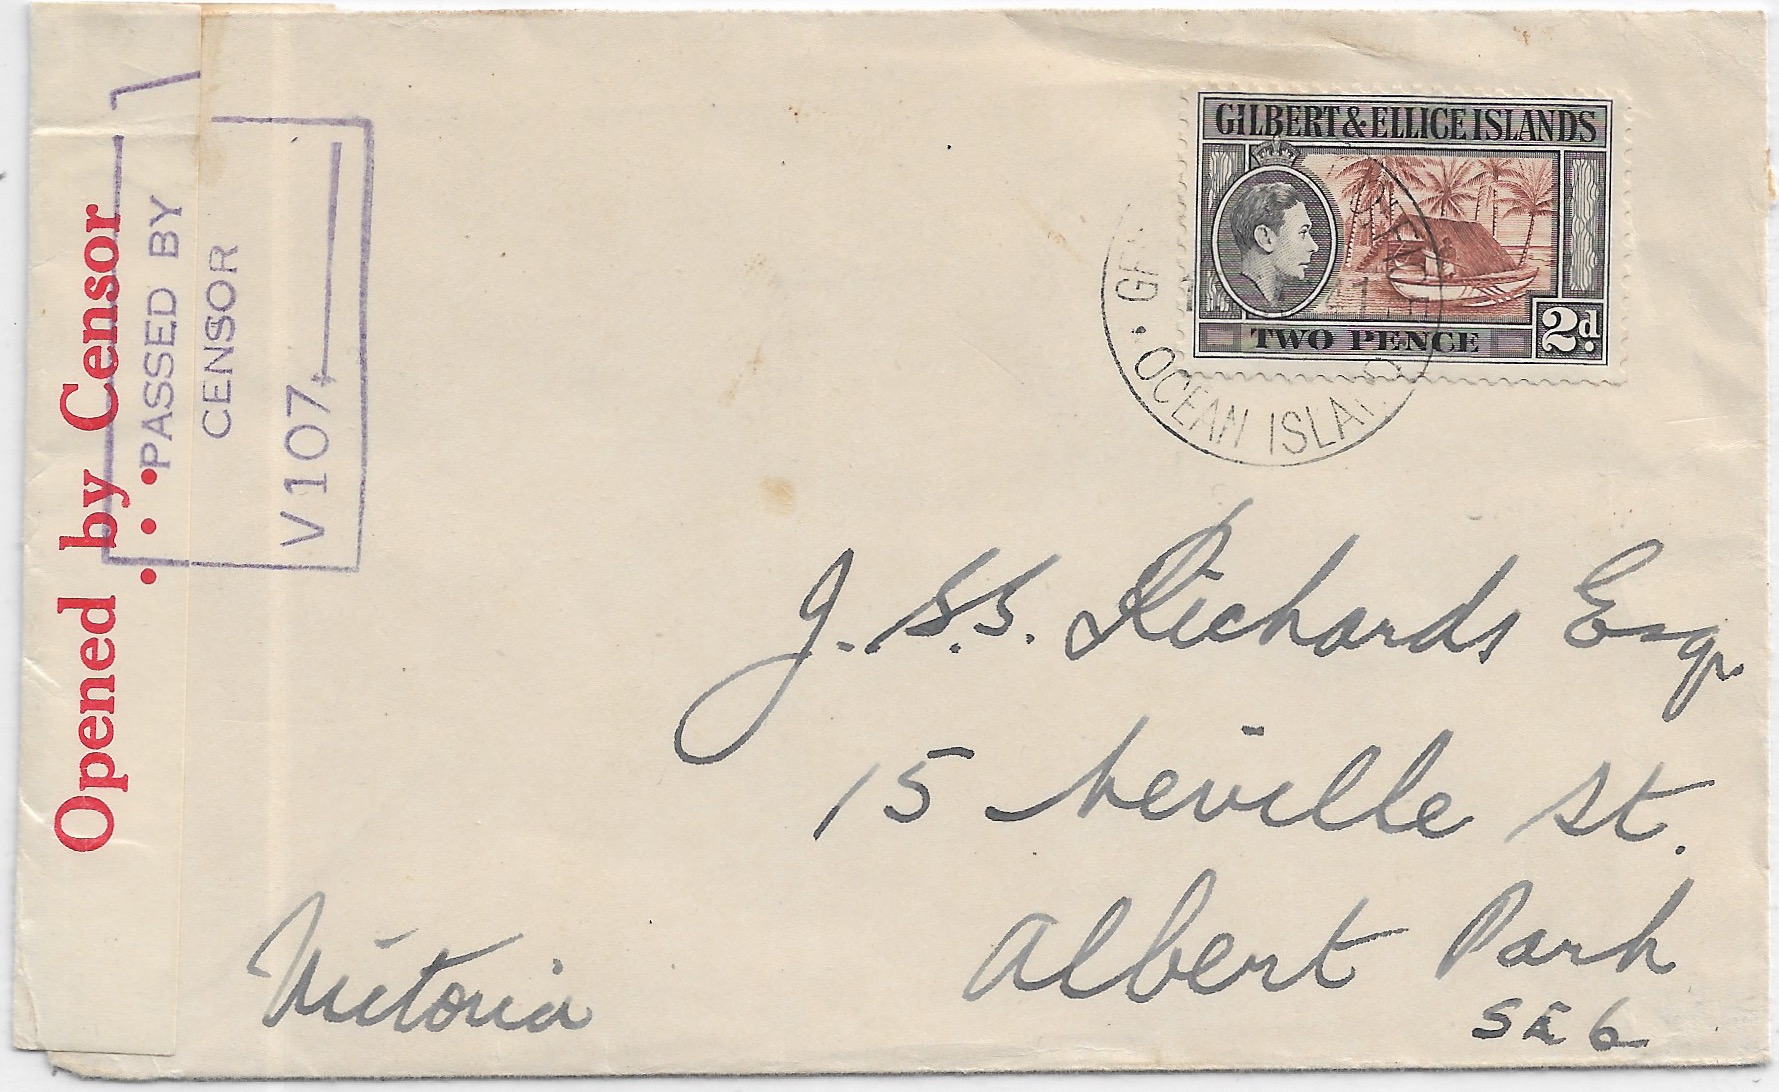 Opened by Censor
PASSED BY
CENSOR
V 107
GILBERT & ELLICE ISLANDS
TWO PENCE
2d.
OCEAN ISLAND
41
J. S. S. Richards Esqr.
15 Neville St.
Albert Park
SE6
Victoria